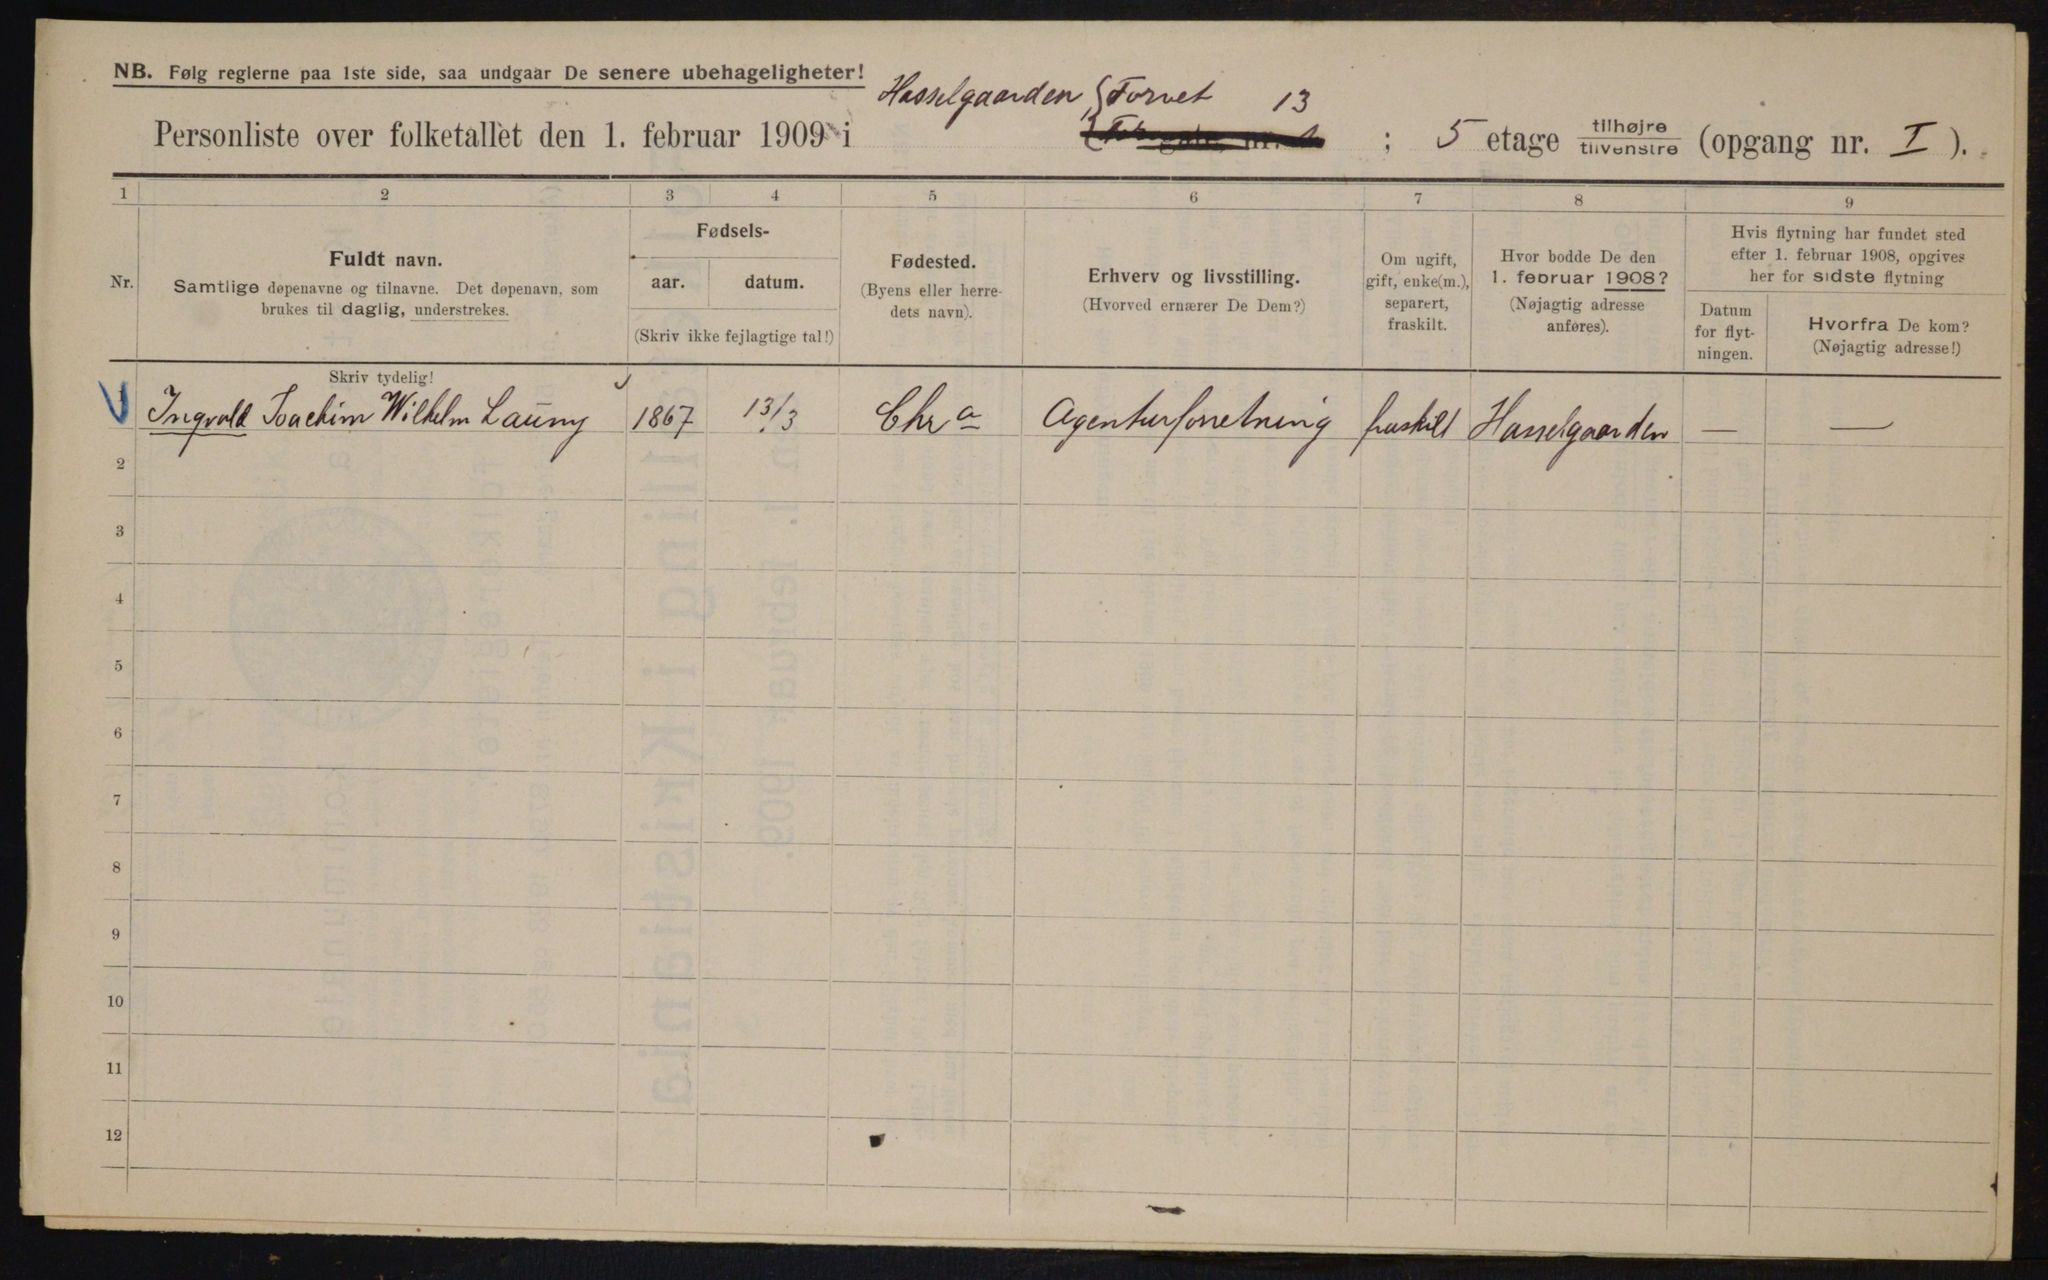 NB. Følg reglerne paa 1ste side, saa undgaar De senere ubehageligheter!
Hasselgaarden { Torvet 13
Personliste over folketallet den 1. februar 1909 i ; 5 etage tilhøjre tilvenstre (opgang nr. I ).
1 2 3 4 5 6 7 8 9
Nr.
Fuldt navn.
Samtlige døpenavne og tilnavne. Det døpenavn, som
brukes til daglig, understrekes.
Skriv tydelig!
Fødsels-
aar. datum.
(Skriv ikke fejlagtige tal!)
Fødested.
(Byens eller herre-
dets navn).
Erhverv og livsstilling.
(Hvorved ernærer De Dem?)
Om ugift,
gift, enke(m.),
separert,
fraskilt.
Hvor bodde De den
1. februar 1908?
(Nøjagtig adresse
anføres).
Hvis flytning har fundet sted
efter 1. februar 1908, opgives
her for sidste flytning
Datum
for flyt-
ningen.
Hvorfra De kom?
(Nøjagtig adresse!)
1 Ingvald Joachim Wilhelm Launy 1867 13/3 Chra Agenturforretning fraskilt Hasselgaarden — —
2
3
4
5
6
7
8
9
10
11
12